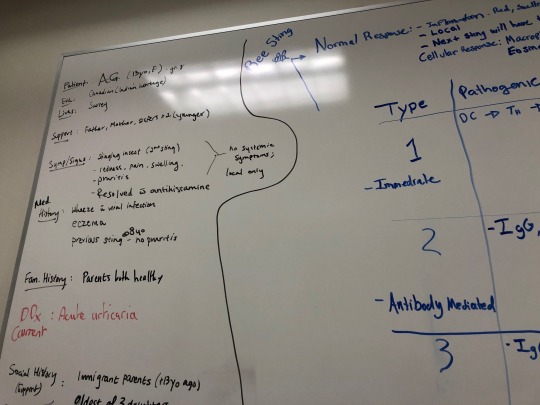 Patient: AG (13yo, F) gr. 8
Eth: Canadian (Indian heritage)
Lives: Surrey
Support: Father, Mother, sisters x2 (younger)
Symp/Signs: Stinging insect (2nd sting)
- redness, pain, swelling
- pruritis
- Resolved c̄ antihistamine
no systemic
symptoms;
local only
Med.
History: Wheeze c̄ viral infection
eczema
previous sting @8yo - no pruritis
Fam. History: Parents both healthy
DDx: Acute urticaria
Current
Social History
(support) : Immigrant parents (+13yo ago)
oldest of 3 daughters
Bee Sting
Normal Response: - Inflammation - Red, Swell
- Local
- Next sting will have
Cellular Response: Macrop
Eosin
Type
Pathogenic
DC → TH →
1
- Immediate
2
- IgG,
- Antibody Mediated
3
- Ig